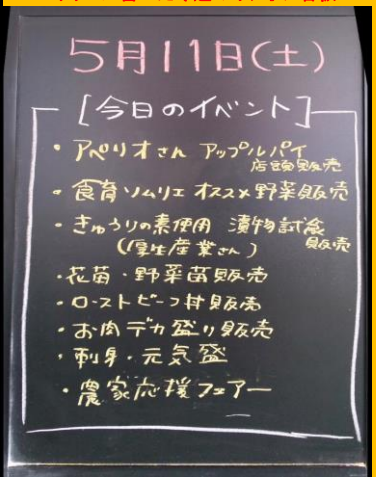 5月11日(土)
[今日のイベント]
・アペリオさん アップルパイ
店頭販売
・食育ソムリエ オススメ野菜販売
・きゅうりの素使用 漬物試食
販売
(厚生産業さん)
・花苗・野菜苗販売
・ローストビーフ丼販売
・お肉デカ盛り販売
・刺身・元気盛
・農家応援フェアー